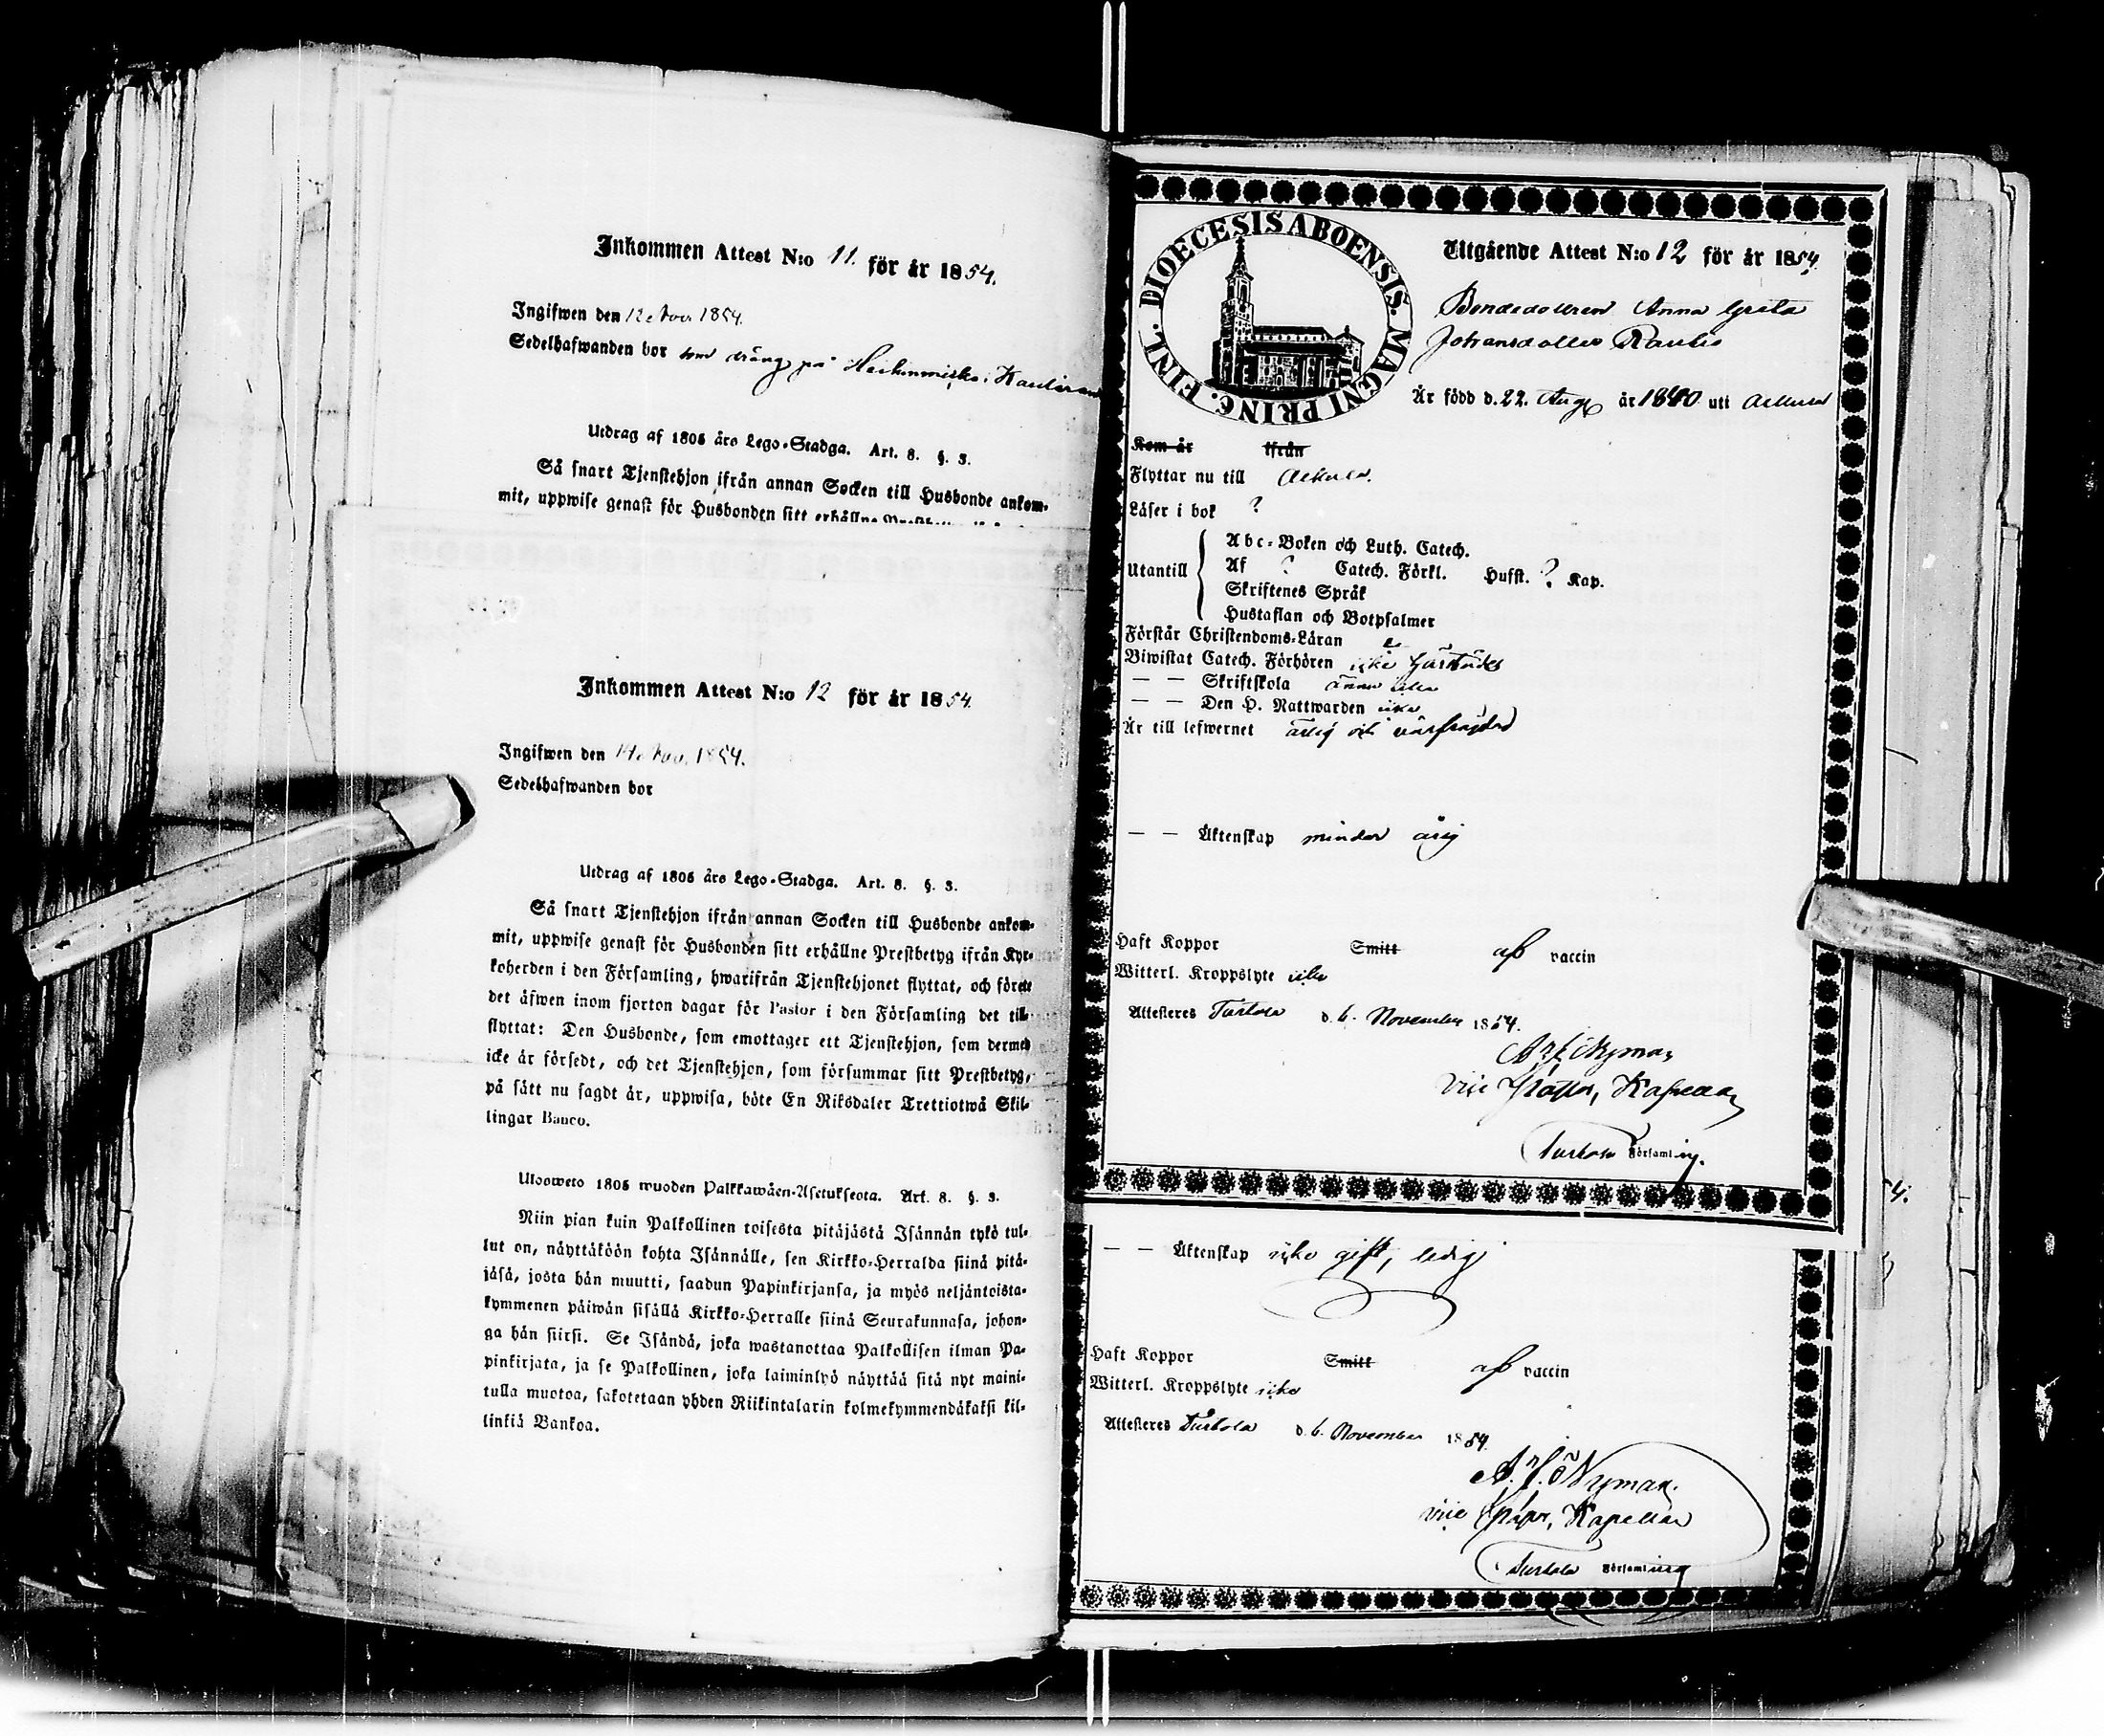 Inkommen Attest N:o 11. för år 1854.
Ingifwen den 12 Nov. 1854.
Sedelhafwanden bor som dräng på
Utdrag af 1805 års Lego-Stadga. Art. 8. §. 3.
Så snart Tjenstehjon ifrån annan Socken till Husbonde ankom-
mit, uppwise genast för Husbonden sitt erhållne
Inkommen Attest N:o 12 för år 1854.
Ingifwen den Nov. 1854.
Sedelhafwanden bor
Utdrag af 1805 års Lego-Stadga. Art. 8. §. 3.
Så snart Tjenstehjon ifrån annan Socken till Husbonde ankom-
mit, uppwise genast för Husbonden sitt erhållne Prestbetyg ifrån Kyr-
koherden i den Församling, hwarifrån Tjenstehjonet flyttat, och förete
det äfwen inom fjorton dagar för Pastor i den Församling det till-
flyttat: Den Husbonde, som emottager ett Tjenstehjon, som dermed
icke är försedt, och det Tjenstehjon, som försummar sitt Prestbetyg,
på sätt nu sagdt är, uppwisa, böte En Riksdaler Trettiotwå Skil-
lingar Banco.
Ulosweto 1805 wuoden Palkkawäen-Asetuksesta. Art. 8. §. 3.
Niin pian kuin Palkollinen toisesta pitäjästä Isännän tykö tul-
lut on, näyttäköön kohta Isännälle, sen Kirkko-Herralda siinä pitä-
jäsä, josta hän muutti, saadun Papinkirjansa, ja myös neljäntoista-
kymmenen päiwän sisällä Kirkko-Herralle siinä Seurakunnasa, johon-
ga hän siirsi. Se Isändä, joka wastanottaa Palkollisen ilman Pa-
pinkirjata, ja se Palkollinen, joka laiminlyö näyttää sitä nyt maini-
tulla muotoa, sakotetaan yhden Riikintalarin kolmekymmendäkaksi kil-
linkiä Bankoa.
FINL. DIOECESIS ABOENSIS. MAGNI PRINC.
Utgående Attest N:o 12 för år 1854.
Bondedottren Anna Greta
Johansdotter Rautio
Är född d. 22. Aug år 1840 uti
Kom år ifrån
Flyttar nu till
Läser i bok ?
Utantill
Abc-Boken och Luth. Catech.
Af ? Catech. Förkl. Husst. ? Kap.
Skriftenes Språk
Hustaflan och Botpsalmer
Förstår Christendoms-Läran
Biwistat Catech. Förhören icke
— — Skriftskola ännu icke
— — Den H. Nattwarden icke
Är till lefwernet ärlig och
— — Äktenskap minder årig
Haft Koppor Smitt af vaccin
Witterl. Kroppslyte icke
Attesteres Turtola d. 6. November 1854.
Nyman
vice Pastor, Kapellan
Turtola Församling.
4.
— — Äktenskap icke gift, ledig
Haft Koppor Smitt af vaccin
Witterl. Kroppslyte icke
Attesteres Turtola d. 6. November 1854.
Nyman.
vice Kapellan
Turtola Församling